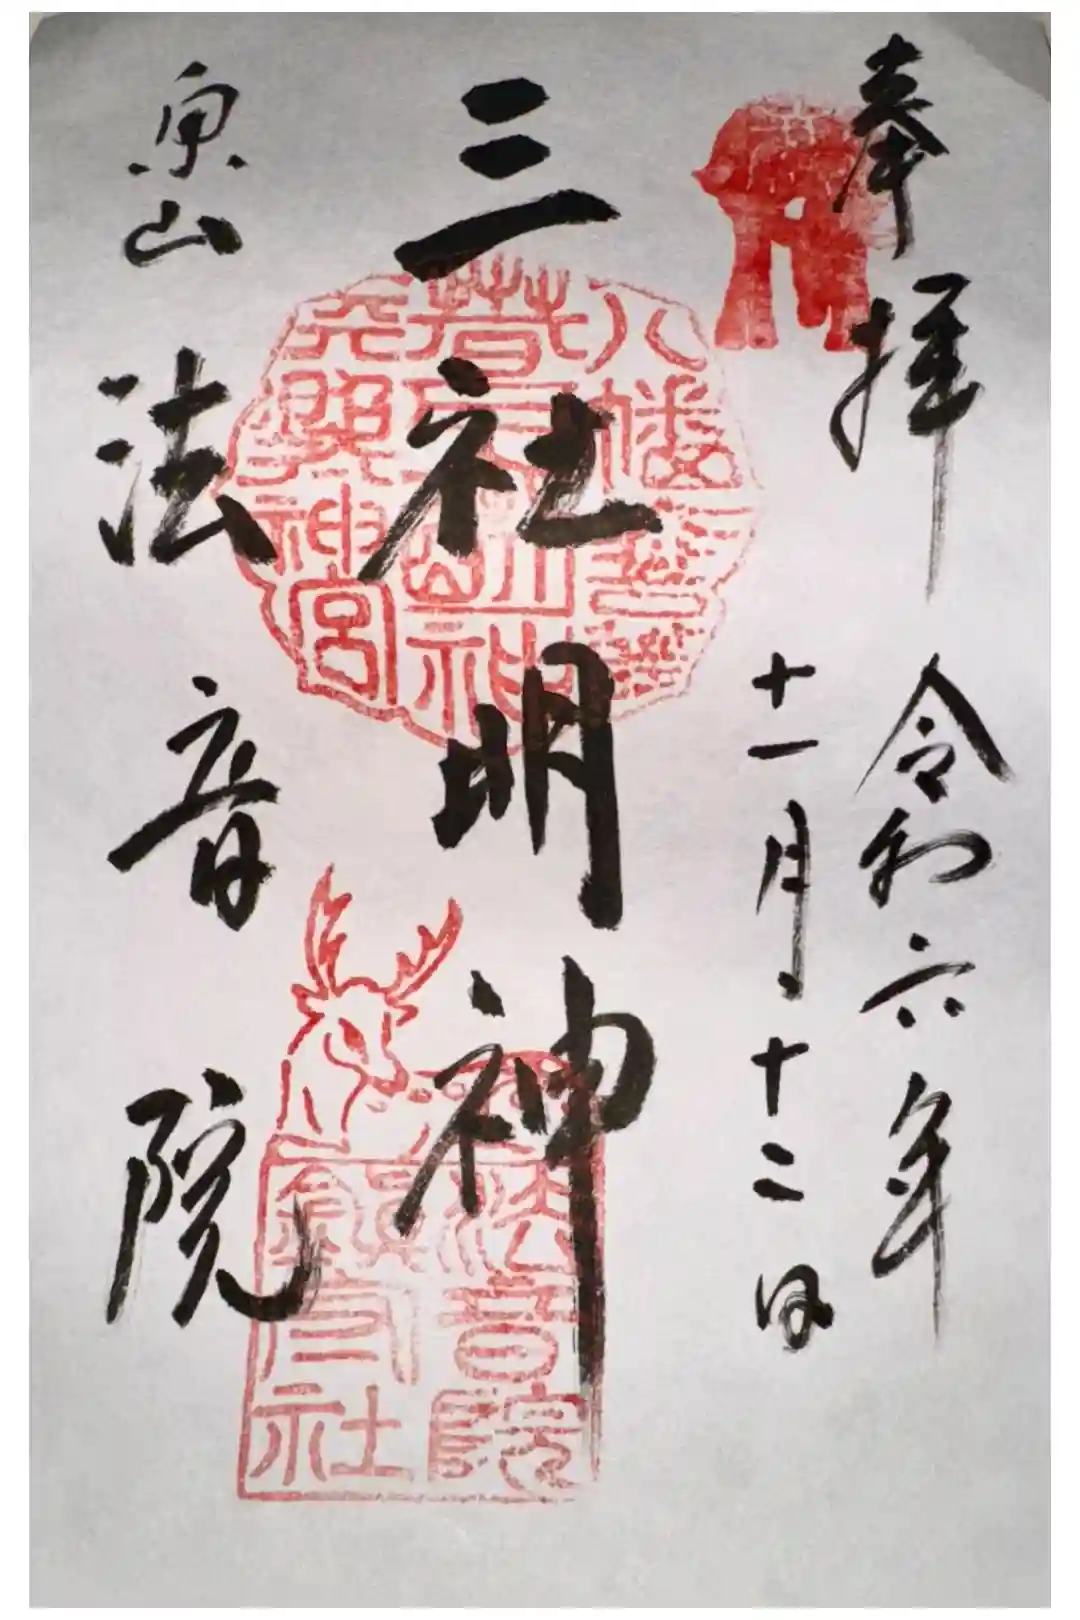 奉拝
令和六年
十一月十二日
三社明神
八幡大菩薩
春日大明神
天照神宮
東山
法音院
法音院
鎮守社